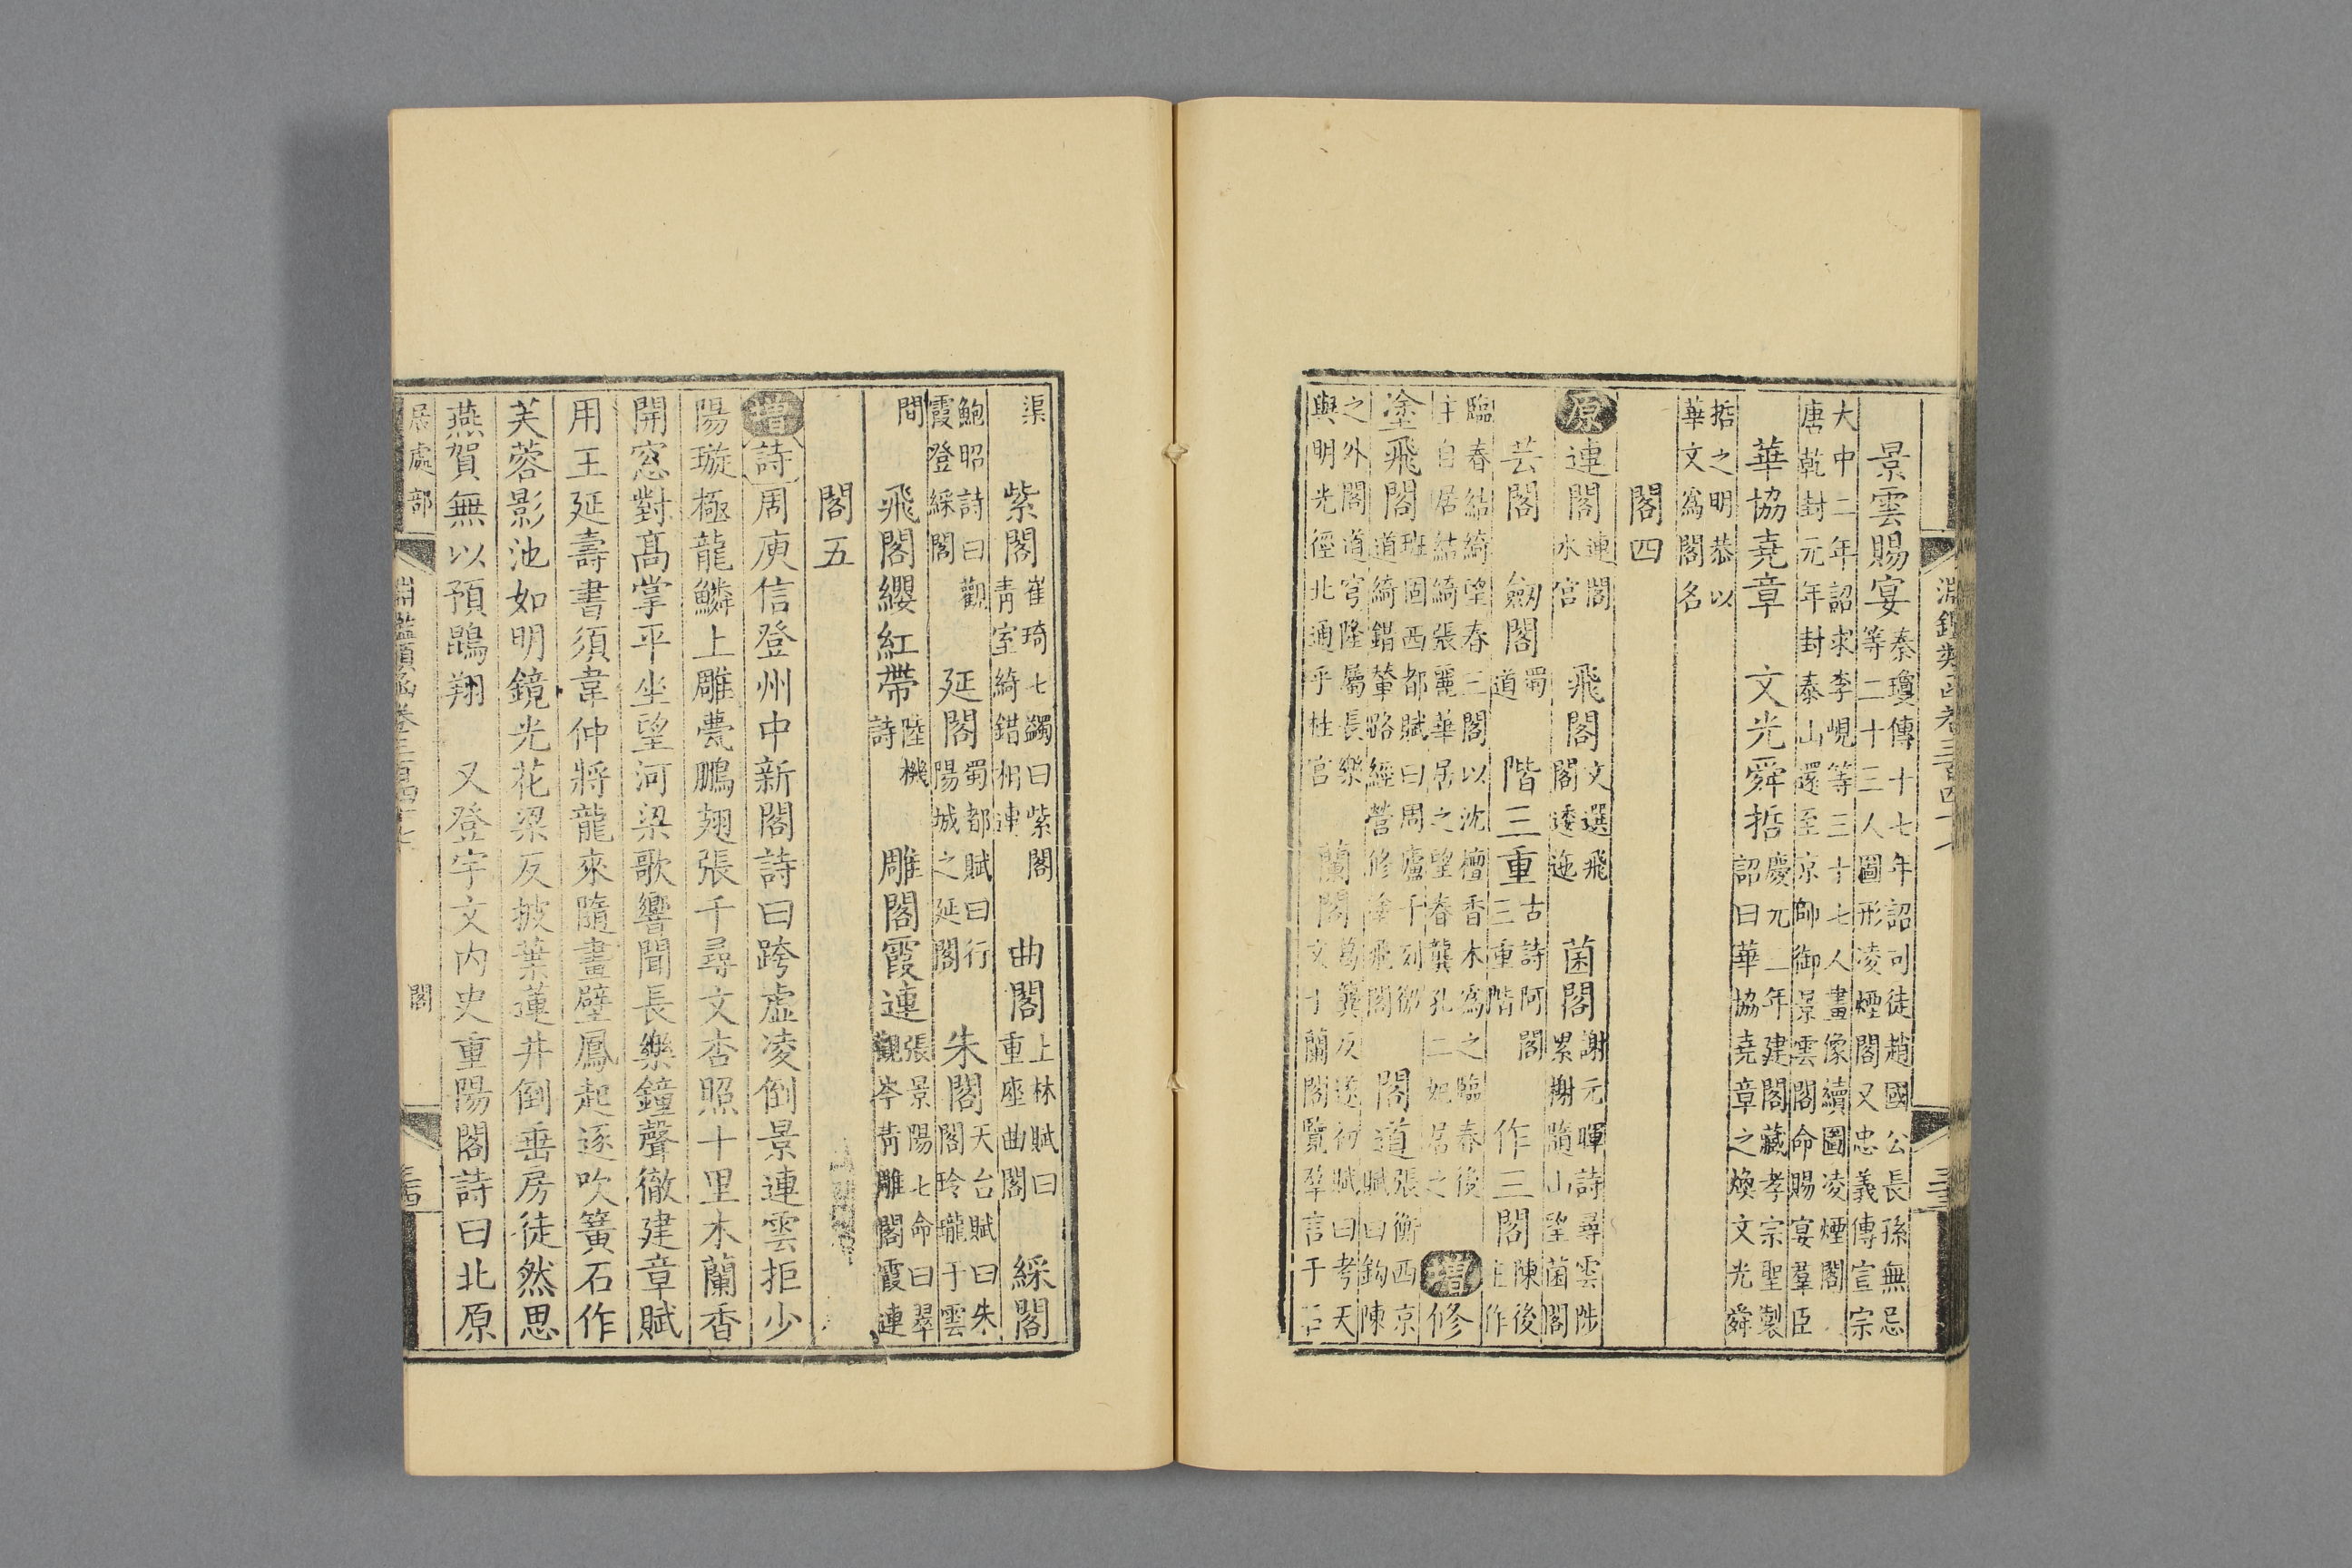 景雲賜宴秦瓊傳十七年詔司徒趙國公長孫無忌等二十三人圖形凌煙閣又忠義傳宣宗
大中二年詔求李峴等三十七人畫像續圖凌煙閣唐乾封元年封泰山還至京師御景雲閣命賜宴羣臣
華協堯章 文光舜哲慶元二年建閣藏孝宗聖製詔曰華協堯章之煥文光舜
哲之明恭以華文爲閣名
閣四
原連閣連閣水宮 飛閣文選飛閣逶迤 菌閣謝元暉詩尋雲陟累榭隨山望菌閣
芸閣 劒閣蜀道 階三重古詩阿閣三重階 作三閣陳後主作
臨春結綺望春三閣以沈檀香木爲之臨春後主自居結綺張麗華居之望春龔孔二妃居之 增修
塗飛閣班固西都賦曰周廬千列徼道綺錯輦路經營修塗飛閣 閣道張衡西京賦曰鈎陳
之外閣道穹隆屬長樂與明光徑北通乎桂宮 蘭閣葛龔反遂初賦曰考天文于蘭閣覽羣言于石
渠 紫閣崔琦七蠲曰紫閣青室綺錯相連 曲閣上林賦曰重座曲閣 綵閣
鮑昭詩曰觀霞登綵閣 延閣蜀都賦曰行陽城之延閣 朱閣天台賦曰朱閣玲瓏于雲
間 飛閣纓紅帶陸機詩 雕閣霞連張景陽七命曰翠觀岑青雕閣霞連
閣五
增詩周庾信登州中新閣詩曰跨虛凌倒景連雲拒少
陽璇極龍鱗上雕甍鵬翅張千尋文杏照十里木蘭香
開窓對高掌平坐望河梁歌響聞長樂鐘聲徹建章賦
用王延壽書須韋仲將龍來隨畫壁鳳起逐吹簧石作
芙蓉影池如明鏡光花梁反披葉蓮井倒垂房徒然思
燕賀無以預鵾翔 又登宇文內史重陽閣詩曰北原
居處部 淵鑑類函卷三百四十七 閣 三十四